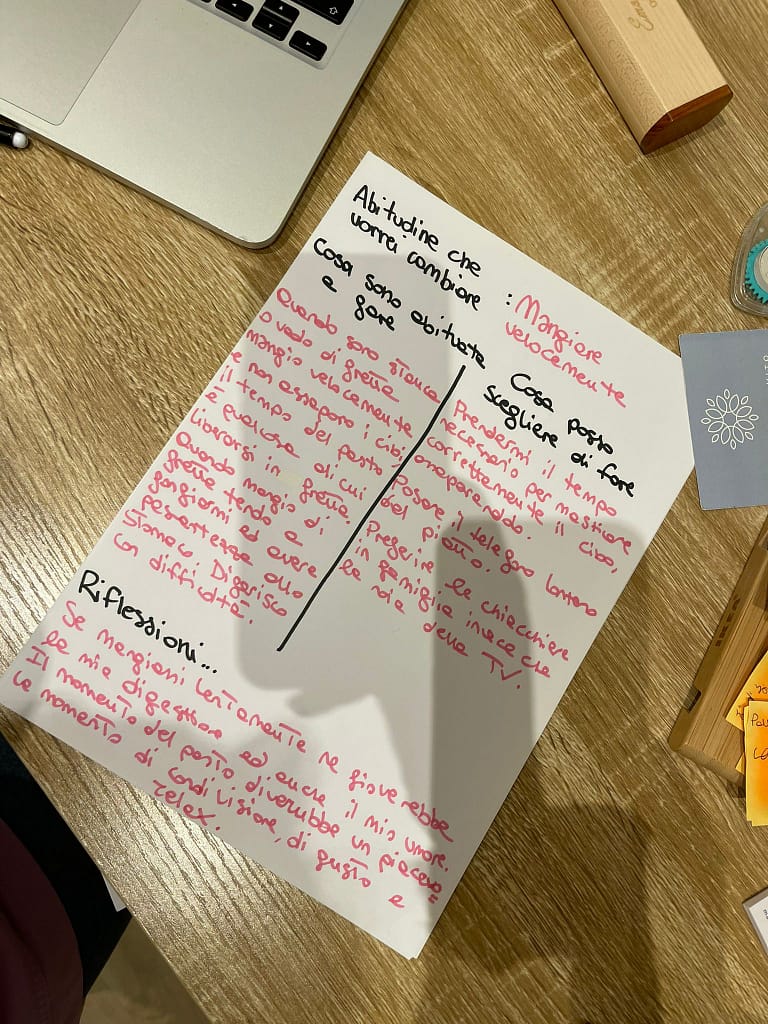 Abitudine che
vorrei cambiare : Mangiare
velocemente
Cosa sono abituata
a fare
Quando sono stanca
o vado di fretta
mangio velocemente
e non assaporo i cibi,
il tempo del pasto
è qualcosa di cui
liberarsi in fretta.
Quando mangio di
fretta tendo a
gonfiarmi ed avere
pesantezza allo
stomaco. Digerisco
con difficoltà.
Cosa posso
scegliere di fare
Prendermi il tempo
necessario per masticare
correttamente il cibo,
assaporandolo.
Posare il telefono lontano
dal piatto.
Preferire le chiacchiere
in famiglia invece che
la voce della TV.
Riflessioni...
Se mangiassi lentamente ne gioverebbe
la mia digestione ed anche il mio umore.
Il momento del pasto diverrebbe un piacevo=
le momento di condivisione, di gusto e
relax.